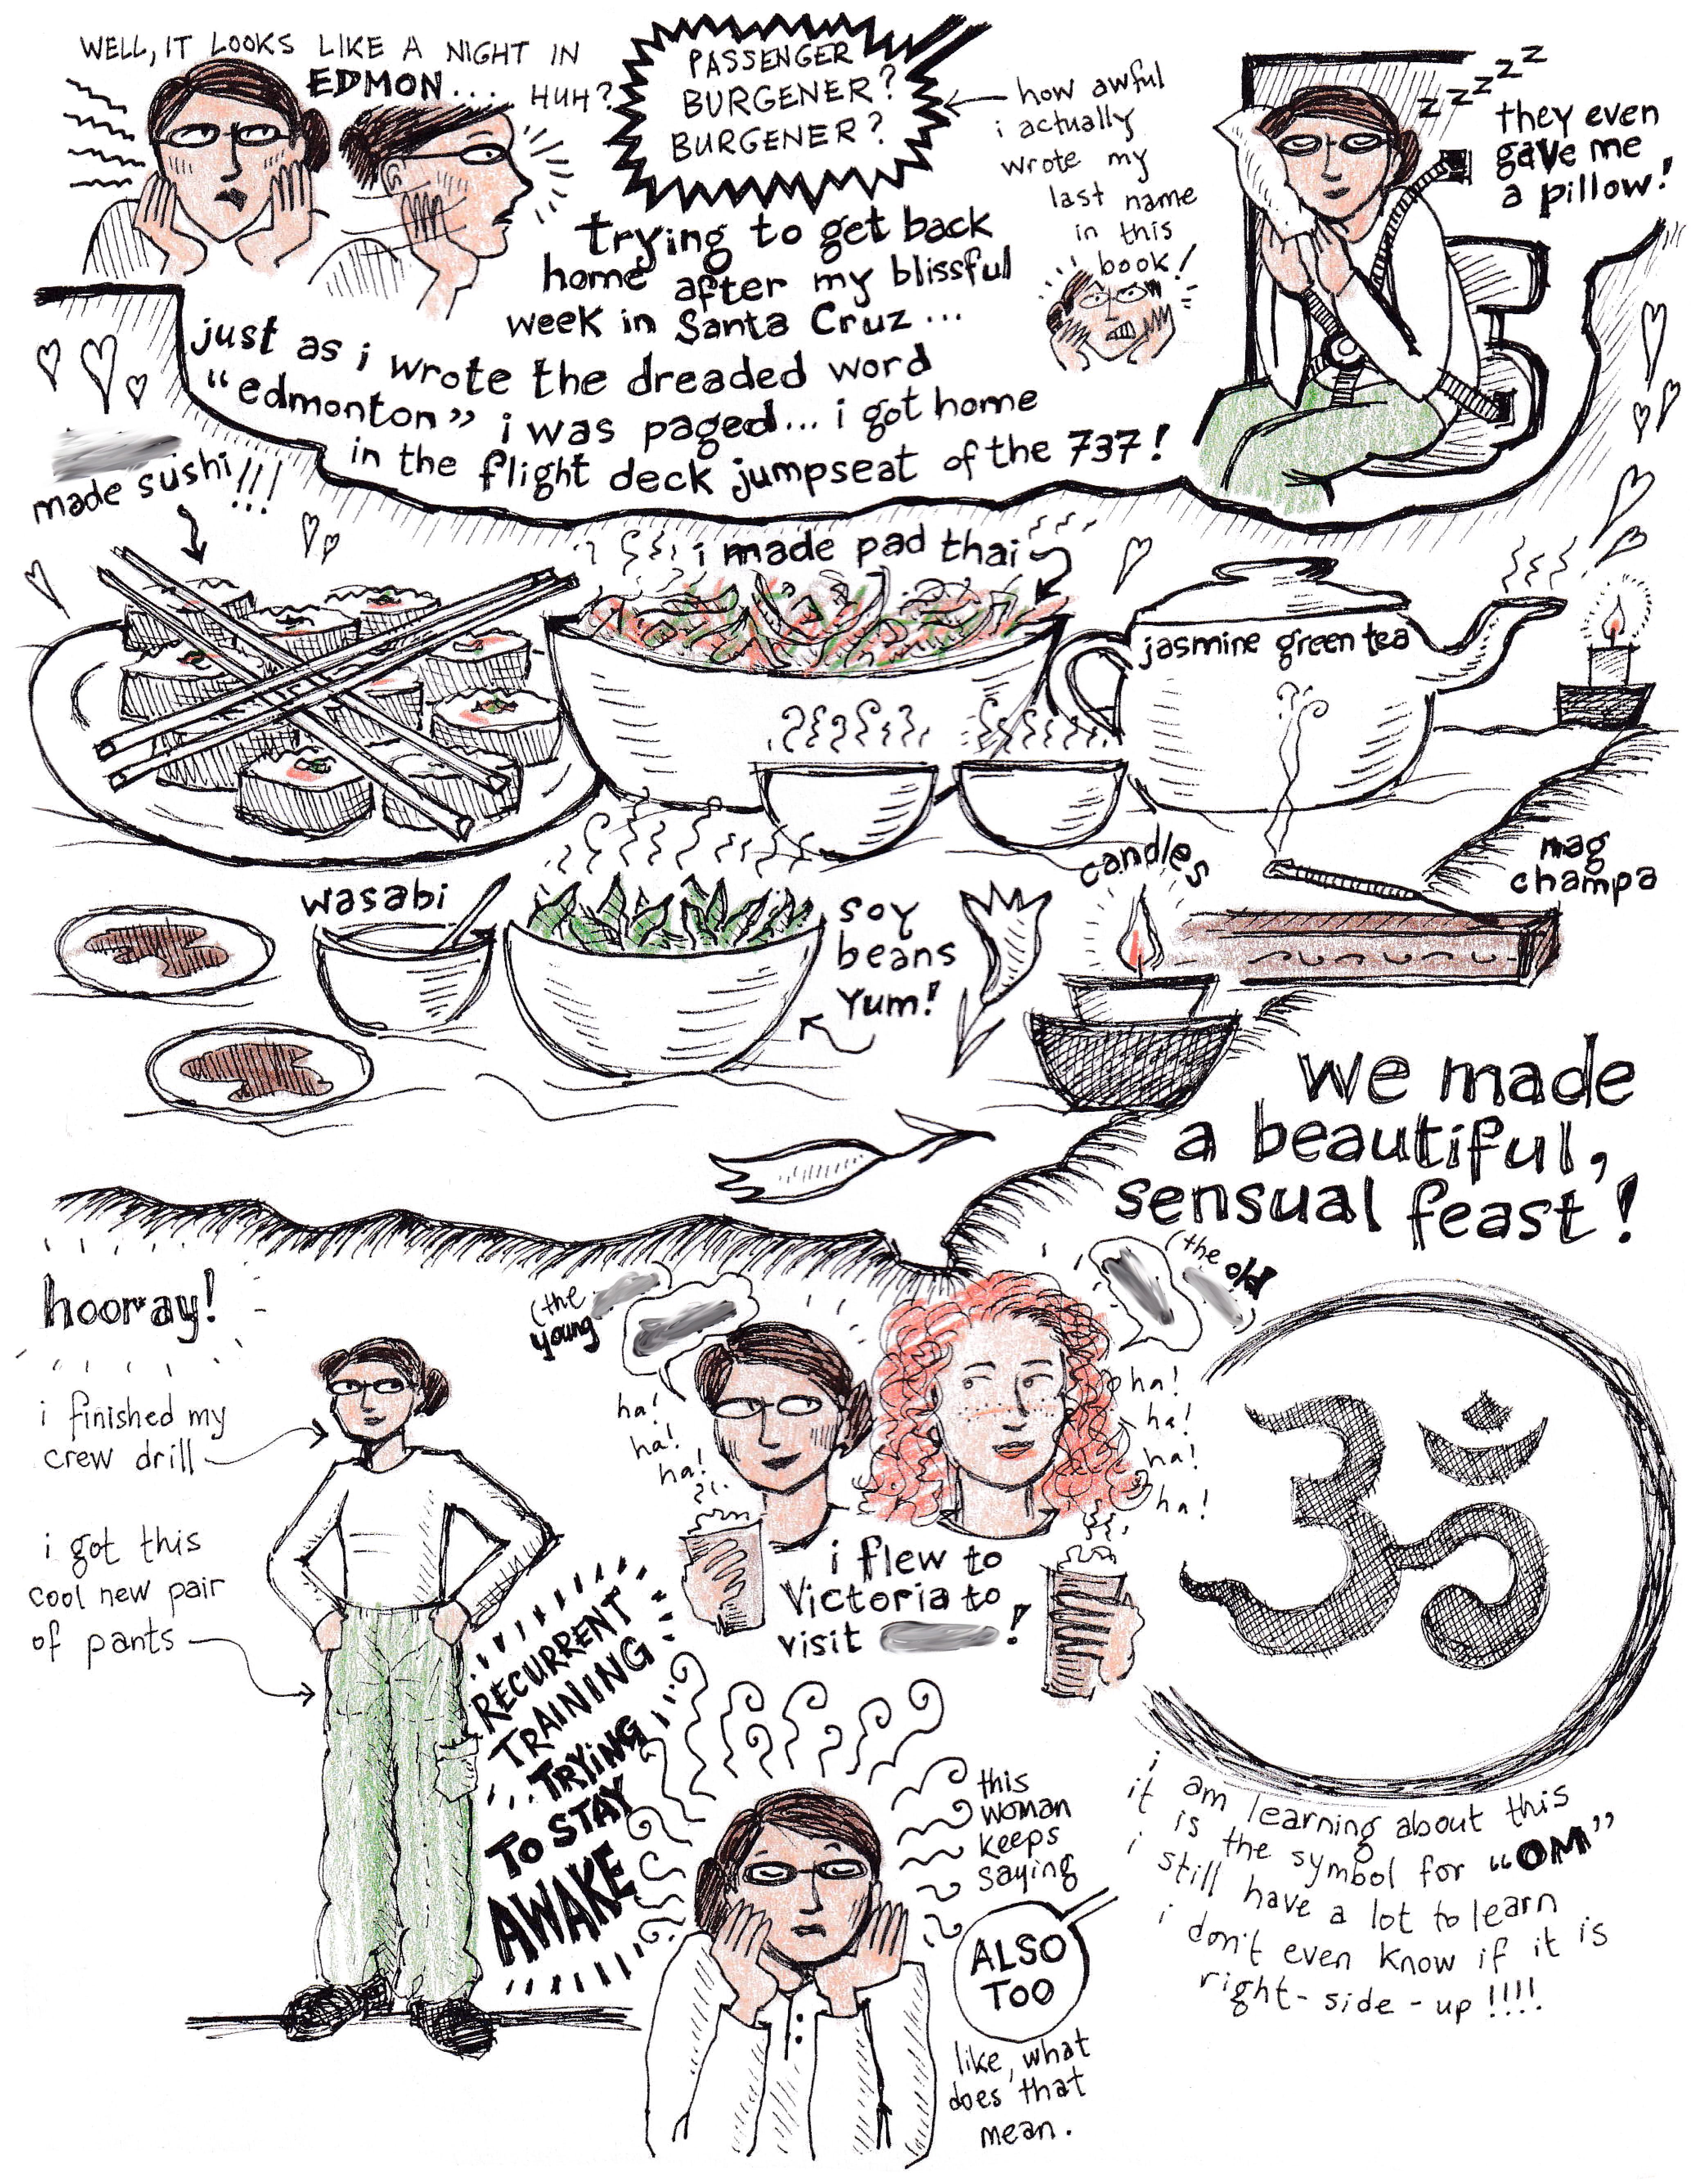 WELL, IT LOOKS LIKE A NIGHT IN
EDMON... HUH?
PASSENGER
BURGENER?
BURGENER?
how awful
i actually
wrote my
last name
in this
book!
zzzzzz
they even
gave me
a pillow!
trying to get back
home after my blissful
week in Santa Cruz...
just as i wrote the dreaded word
"edmonton" i was paged... i got home
in the flight deck jumpseat of the 737!
made sushi!!!
i made pad thai
jasmine green tea
wasabi
soy
beans
Yum!
candles
mag
champa
we made
a beautiful,
sensual feast!
hooray!
i finished my
crew drill
i got this
cool new pair
of pants
(the
young
(the old
ha!
ha!
ha!
ha!
ha!
ha!
ha!
i flew to
Victoria to
visit !
RECURRENT
TRAINING
...TRYING
TO STAY
AWAKE
this
woman
keeps
saying
ALSO
TOO
like, what
does that
mean.
i am learning about this
it is the symbol for "OM"
i still have a lot to learn
i don't even know if it is
right-side-up!!!!